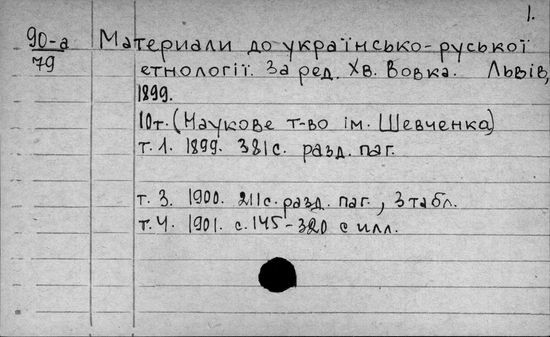 1.
90-а
79
Материали до українсько-руської
етнології. За ред. Хв. Вовка. Львів,
1899.
10т. (Наукове т-во ім. Шевченка)
т. 1. 1899. 381с. разд. паг.
т. 3. 1900. 211с. разд. паг., 3 табл.
т. 4. 1901. с. 145-320 с илл.